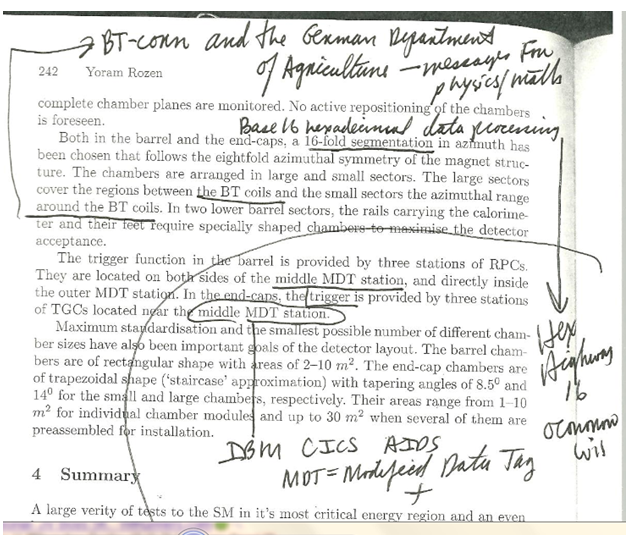 BT-corn and the German Department
of Agriculture — messages For
physics/math
242 Yoram Rozen
complete chamber planes are monitored. No active repositioning of the chambers
is foreseen.
Base 16 hexadecimal data processing
Both in the barrel and the end-caps, a 16-fold segmentation in azimuth has
been chosen that follows the eightfold azimuthal symmetry of the magnet struc-
ture. The chambers are arranged in large and small sectors. The large sectors
cover the regions between the BT coils and the small sectors the azimuthal range
around the BT coils. In two lower barrel sectors, the rails carrying the calorime-
ter and their feet require specially shaped chambers to maximise the detector
acceptance.
The trigger function in the barrel is provided by three stations of RPCs.
They are located on both sides of the middle MDT station, and directly inside
the outer MDT station. In the end-caps, the trigger is provided by three stations
of TGCs located near the middle MDT station.
Maximum standardisation and the smallest possible number of different cham-
ber sizes have also been important goals of the detector layout. The barrel cham-
bers are of rectangular shape with areas of 2–10 m². The end-cap chambers are
of trapezoidal shape ('staircase' approximation) with tapering angles of 8.5⁰ and
14⁰ for the small and large chambers, respectively. Their areas range from 1–10
m² for individual chamber modules and up to 30 m² when several of them are
preassembled for installation.
Hex
Highway
16
Oconomowis
IBM CICS AIDS
MDT = Modified Data Tag
+
4 Summary
A large verity of tests to the SM in it's most critical energy region and an even